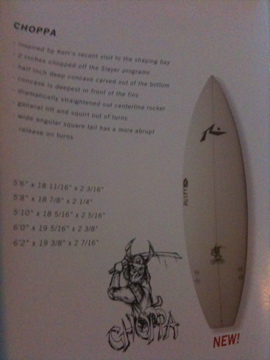 CHOPPA
- Inspired by Kerr's recent visit to the shaping bay
- 2 inches chopped off the Slayer programs
- half inch deep concave carved out of the bottom
- concave is deepest in front of the fins
- dramatically straightened out centerline rocker
- general zim and squirt out of turns
- wide angular square tail has a more abrupt
release on turns
5'6" x 18 11/16" x 2 3/16"
5'8" x 18 7/8" x 2 1/4"
5'10" x 18 5/16" x 2 5/16"
6'0" x 19 5/16" x 2 3/8"
6'2" x 19 3/8" x 2 7/16"
CHOPPA
RUSTY
NEW!